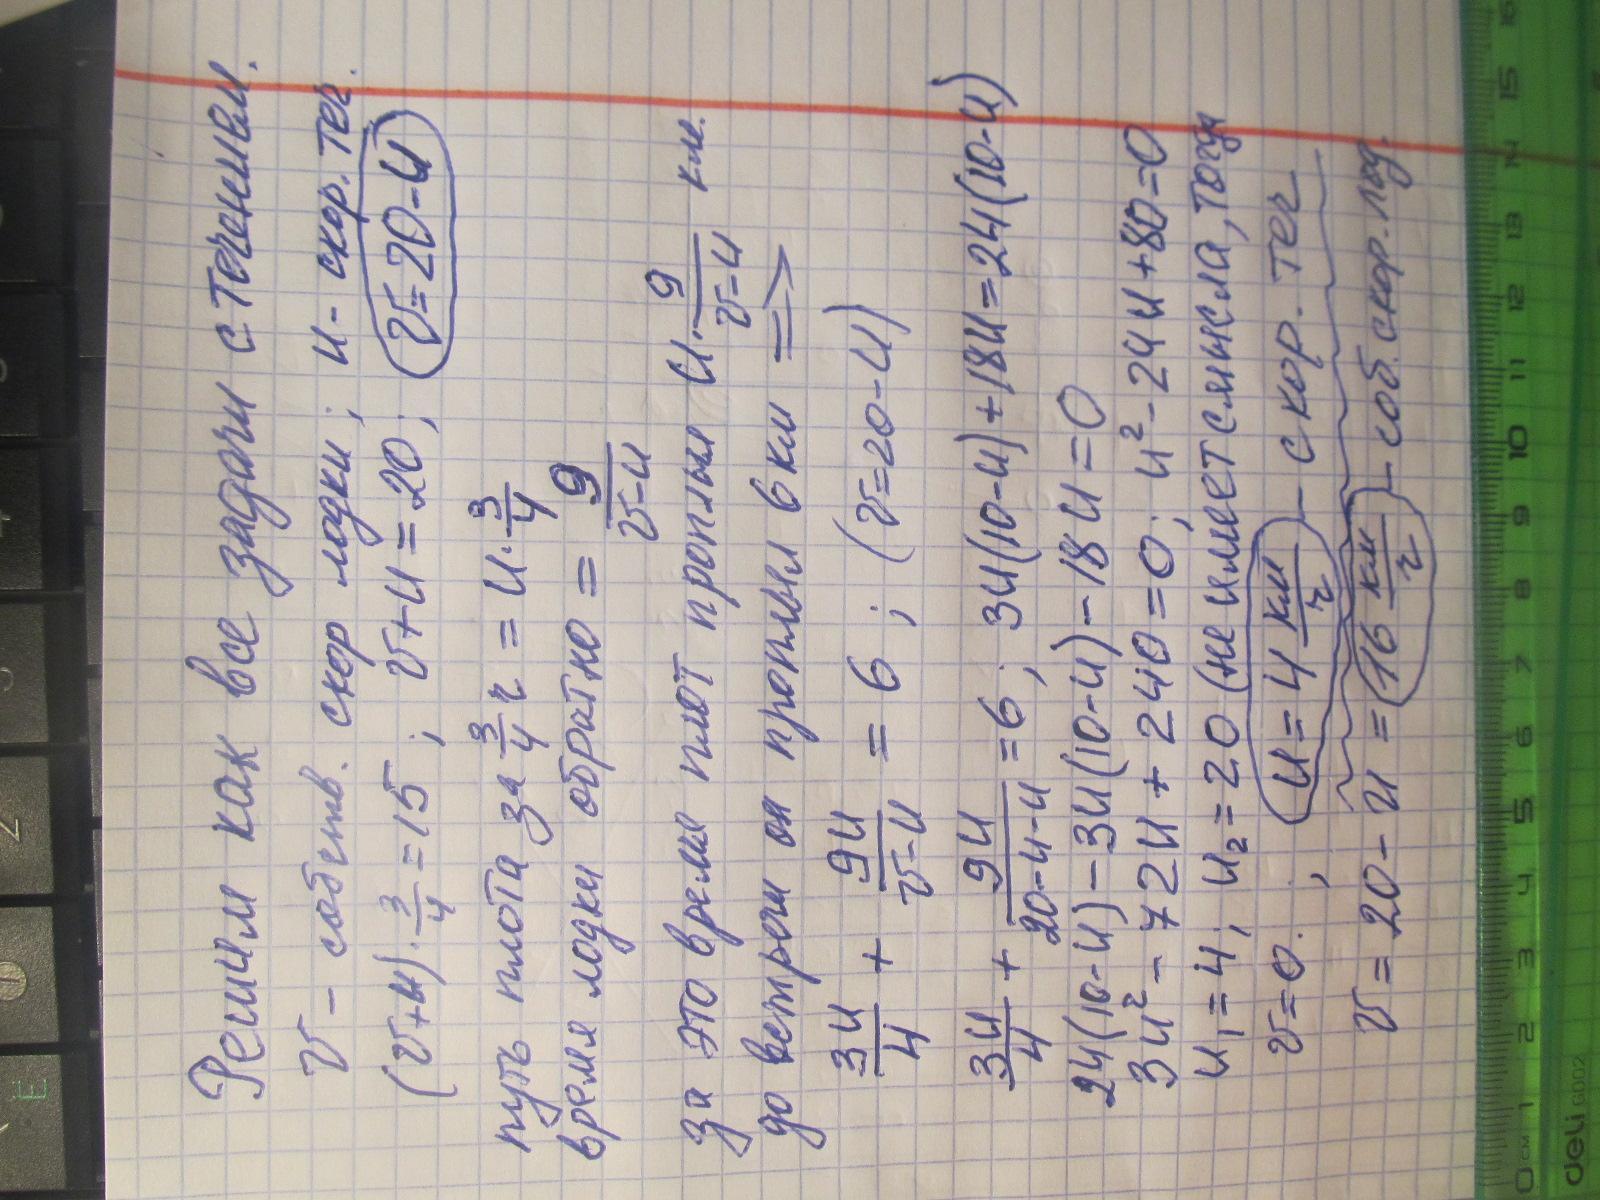 Решим как все задачи с течением.
V - собств. скор лодки; u - скор. теч.
(V+u)·3/4 = 15; V+u = 20; V = 20-u
путь плота за 3/4 ч = u·3/4
время лодки обратно = 9/(V-u)
за это время плот проплыл u·9/(V-u) км.
до встречи он проплыл 6 км =>
3u/4 + 9u/(V-u) = 6; (V=20-u)
3u/4 + 9u/(20-u-u) = 6; 3u(10-u)+18u=24(10-u)
24(10-u)-3u(10-u)-18u=0
3u²-72u+240=0; u²-24u+80=0
u₁=4; u₂=20 (не имеет смысла, тогда
V=0. ; u=4 км/ч - скор. теч
V=20-u = 16 км/ч - соб. скор. лод.
0 см 1 2 3 4 5 6 7 8 9 10 11 12 13 14 15 16
deli 6002
E